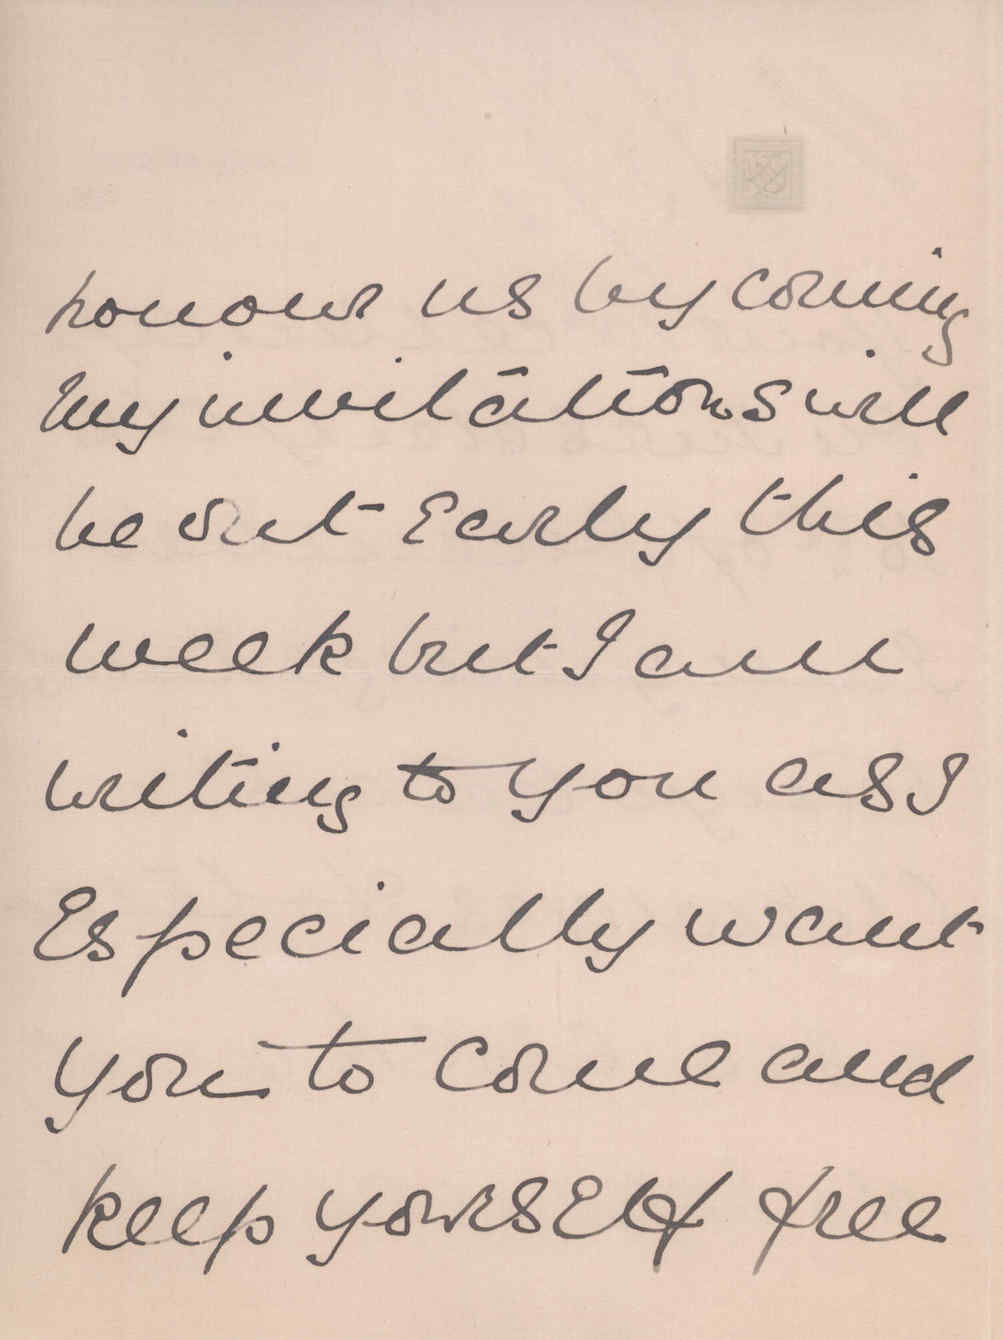 honour us by coming
My invitations will
be out Early this
week but I am
writing to you as I
Especially want
you to come and
keep yourself free